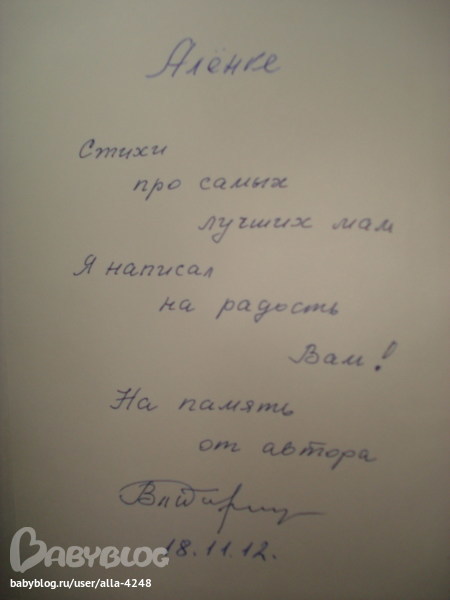 Алёнке
Стихи
про самых
лучших мам
Я написал
на радость
Вам!
На память
от автора
18.11.12.
BABYBLOG
babyblog.ru/user/alla-4248